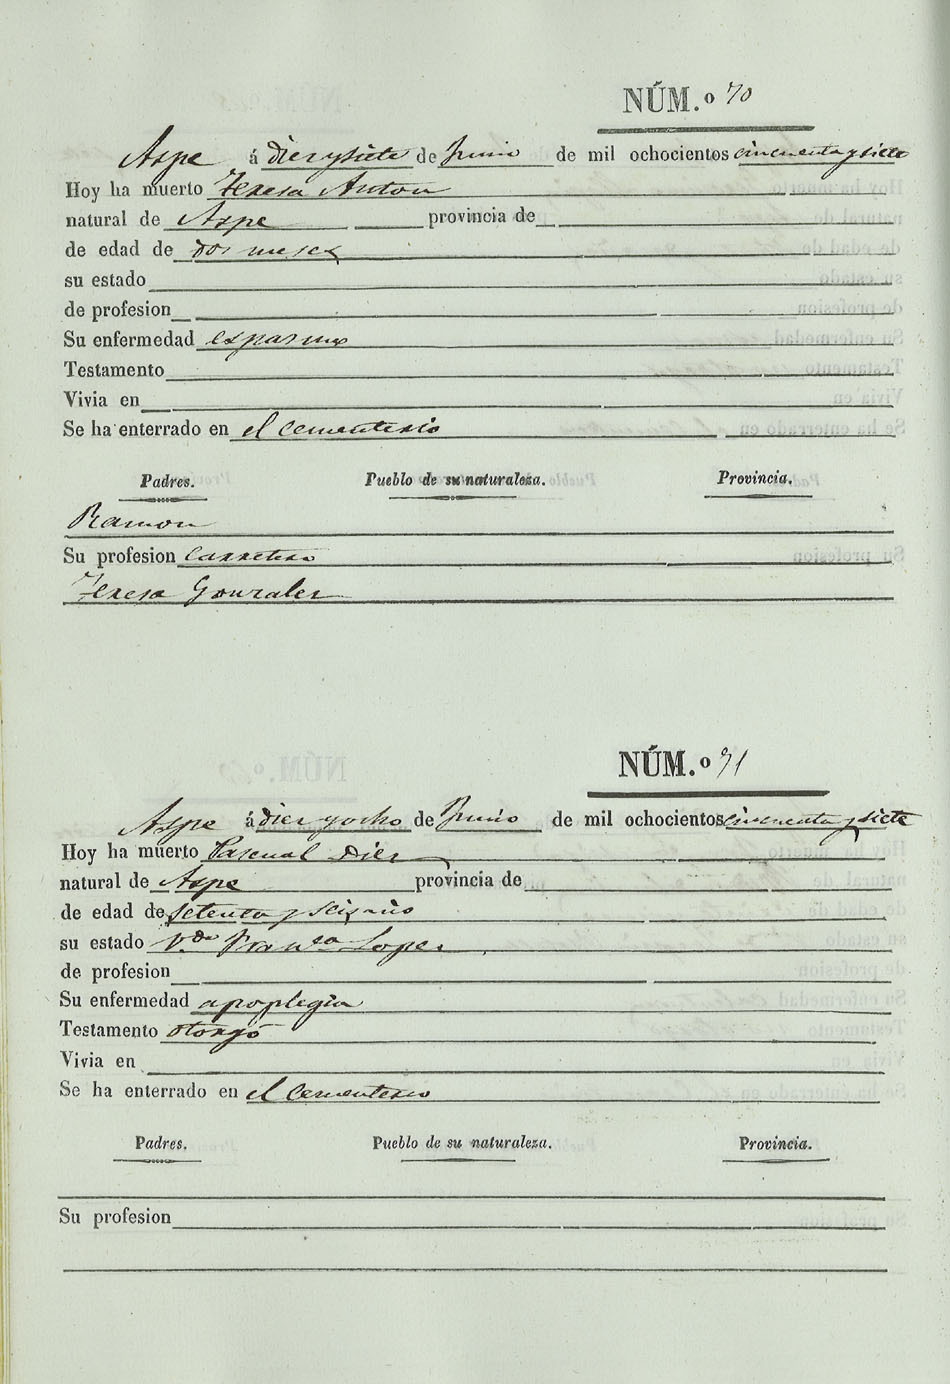 NÚM.º 70
Aspe á diez y siete de Junio de mil ochocientos cincuenta y siete
Hoy ha muerto Teresa Anton
natural de Aspe provincia de
de edad de dos meses
su estado
de profesion
Su enfermedad espasmo
Testamento
Vivia en
Se ha enterrado en el cementerio
Padres. Pueblo de su naturaleza. Provincia.
Ramon
Su profesion carretero
Teresa Gonzalez
NÚM.º 71
Aspe á diez y ocho de Junio de mil ochocientos cincuenta y siete
Hoy ha muerto Pascual Diez
natural de Aspe provincia de
de edad de setenta y seis año
su estado V.do Franca Lopez
de profesion
Su enfermedad apoplegia
Testamento otorgó
Vivia en
Se ha enterrado en el cementerio
Padres. Pueblo de su naturaleza. Provincia.
Su profesion